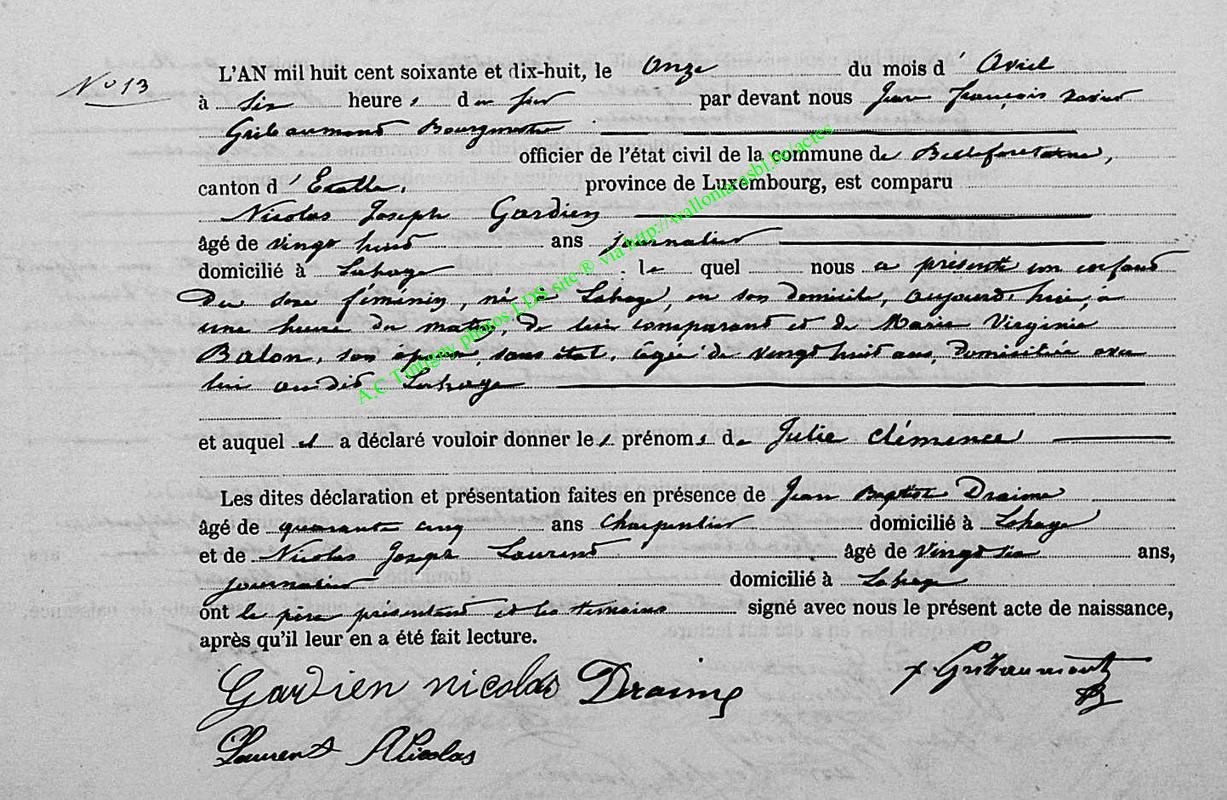 No 13
L'AN mil huit cent soixante et dix-huit, le onze du mois d' Avril
à six heures du soir par devant nous Jean François Xavier
Gribaumont Bourgmestre
officier de l'état civil de la commune de Bellefontaine,
canton d'Etalle, province de Luxembourg, est comparu
Nicolas Joseph Gardien
âgé de vingt huit ans journalier
domicilié à Lahage, lequel nous a présenté un enfant
du sexe féminin, né à Lahage, en son domicile, aujourd'hui, à
une heure du matin, de lui comparant et de Marie Virginie
Balon, son épouse, sans état, âgée de vingt huit ans, domiciliée avec
lui audit Lahage
et auquel il a déclaré vouloir donner les prénoms de Julie Clémence
Les dites déclaration et présentation faites en présence de Jean Baptiste Draime
âgé de quarante cinq ans charpentier domicilié à Lahage
et de Nicolas Joseph Laurent âgé de vingt six ans,
journalier domicilié à Lahage
ont le père présentant et les témoins signé avec nous le présent acte de naissance,
après qu'il leur en a été fait lecture.
Gardien nicolas Draime Gribaumont
Laurent Nicolas
A.C Tintigny photos LDS site ® via http://wallonia-asbl.be/actes